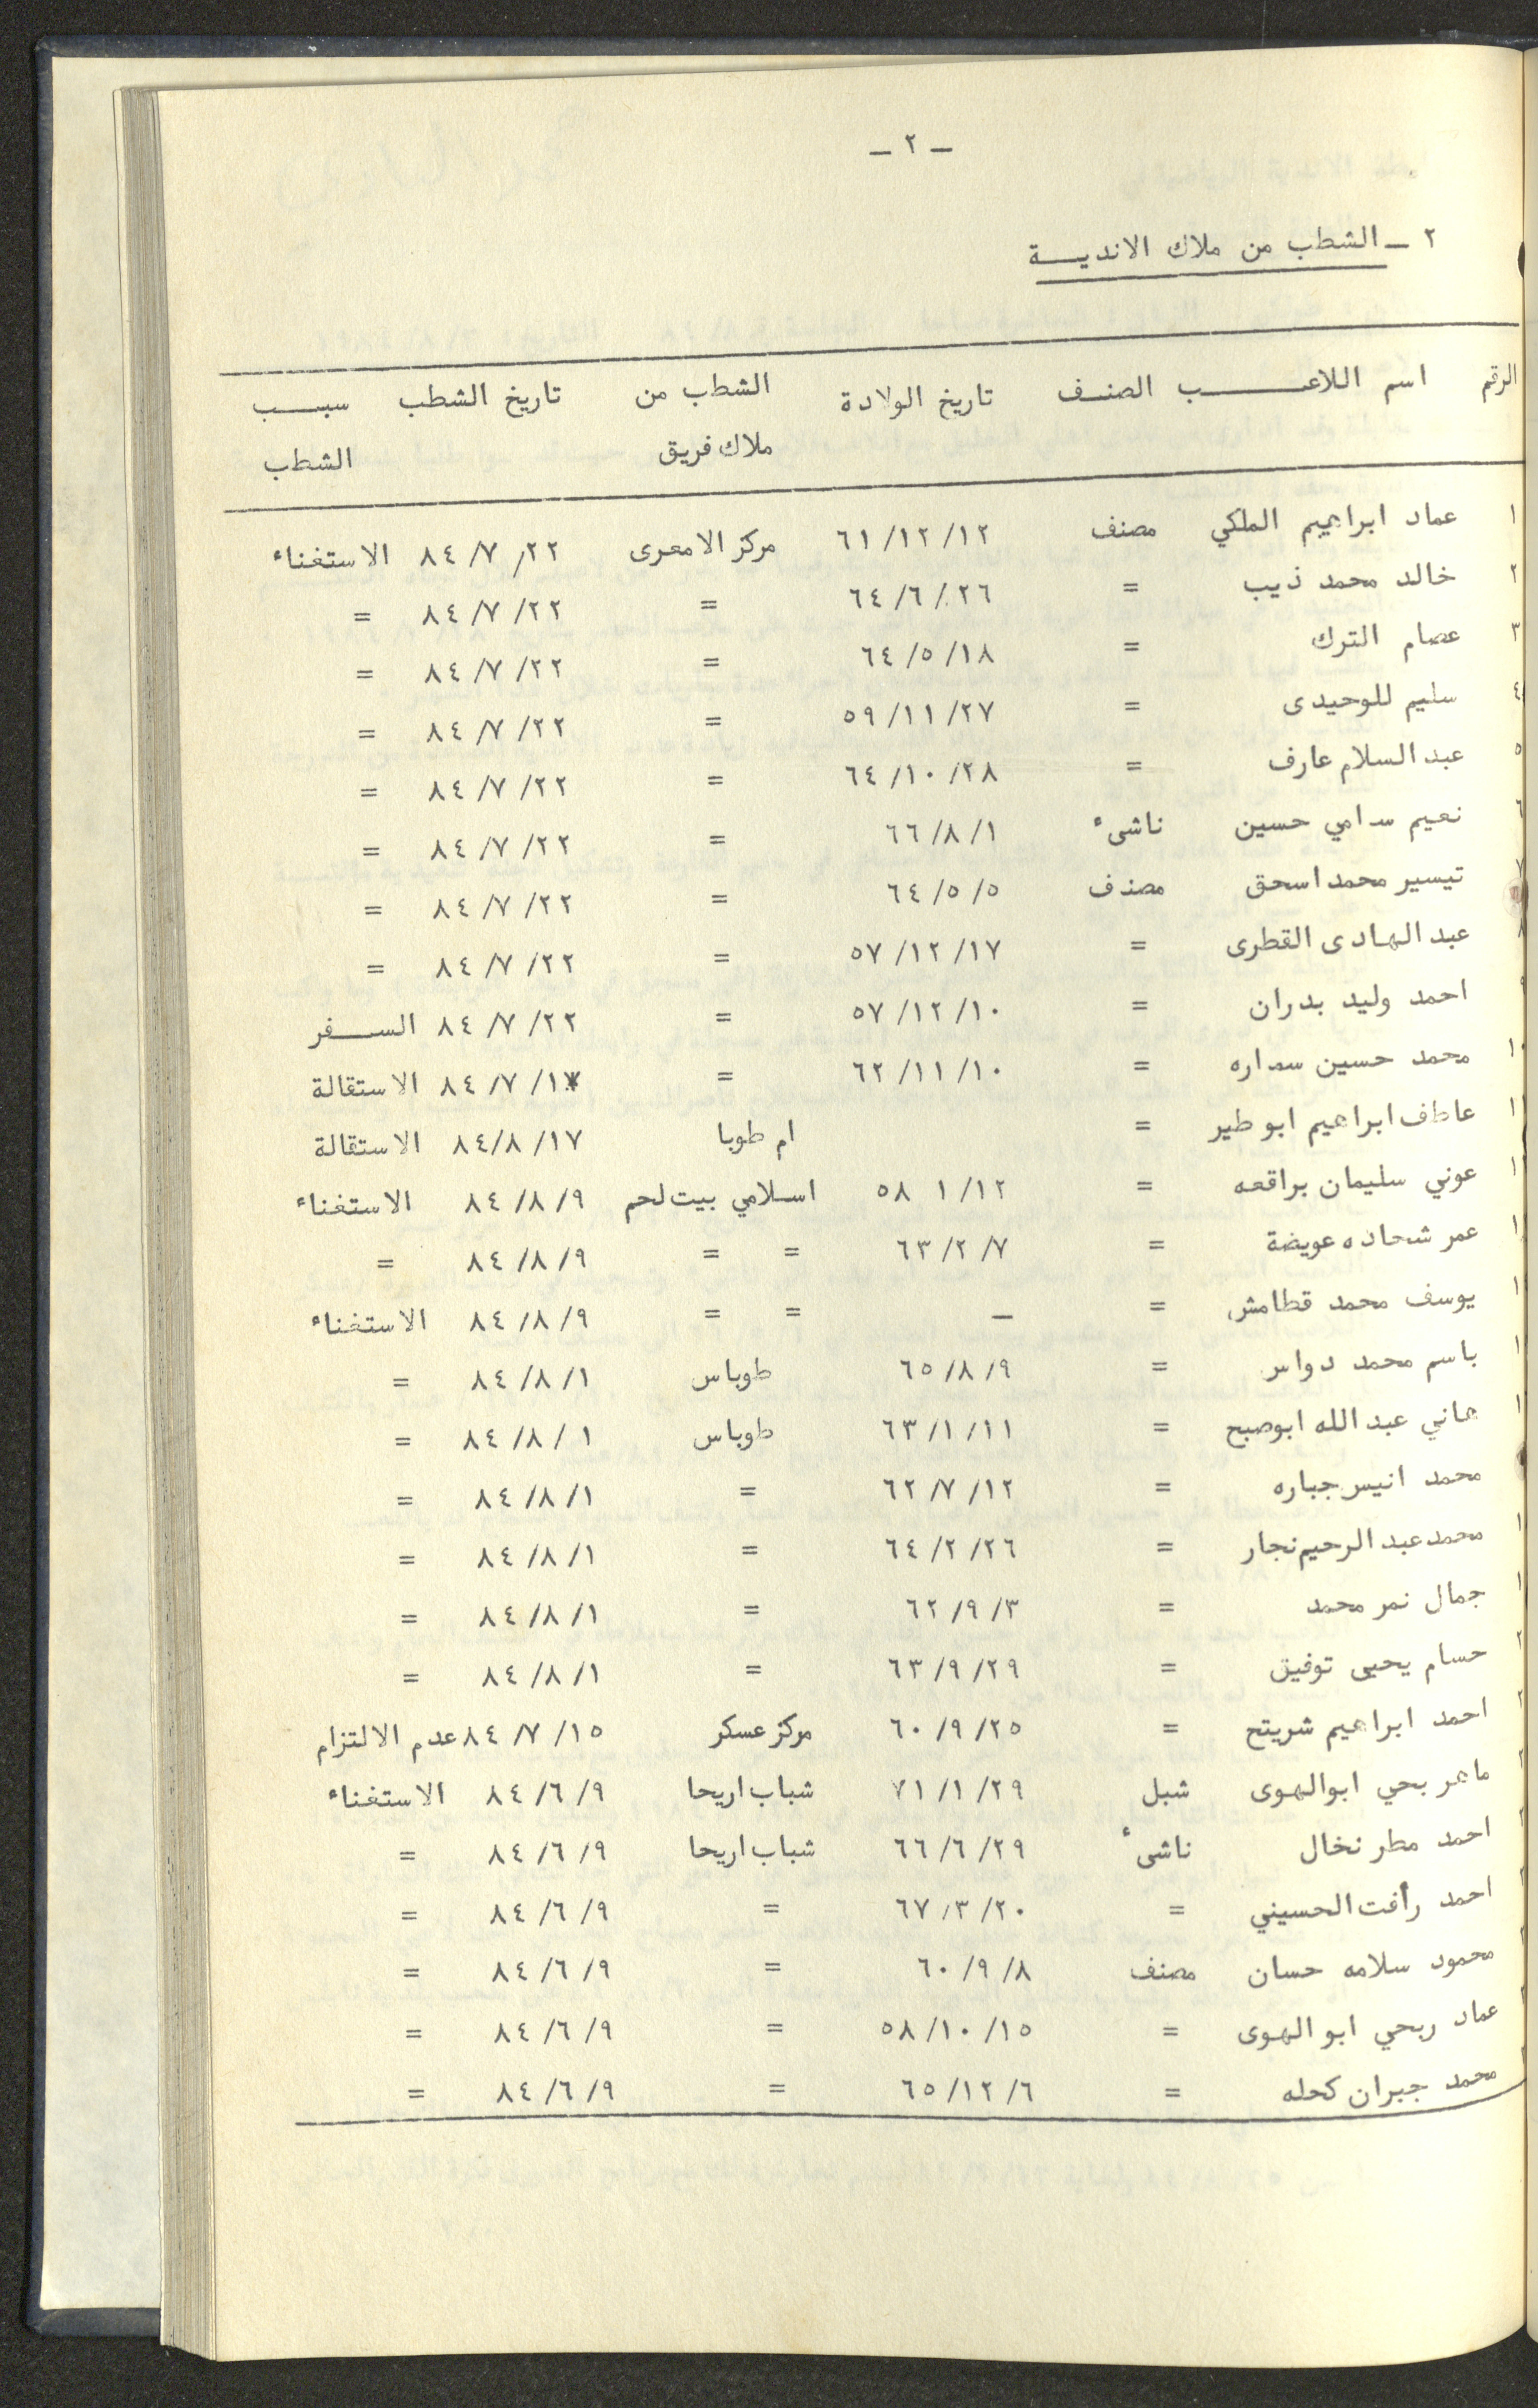 ـ ٢ ـ
٢ ـ الشطب من ملاك الانديـــة
الرقم اسم اللاعـــــــب الصنـف تاريخ الولادة الشطب من تاريخ الشطب سبـــب
ملاك فريق الشطب
١ عماد ابراهيم الملكي مصنف ٦١/١٢/١٢ مركز الامعرى ٨٤/٧/٢٢ الاستغناء
٢ خالد محمد ذيب = ٦٤/٦/٢٦ = ٨٤/٧/٢٢ =
٣ عصام الترك = ٦٤/٥/١٨ = ٨٤/٧/٢٢ =
٤ سليم للوحيدى = ٥٩/١١/٢٧ = ٨٤/٧/٢٢ =
٥ عبد السلام عارف = ٦٤/١٠/٢٨ = ٨٤/٧/٢٢ =
٦ نعيم سامي حسين ناشىء ٦٦/٨/١ = ٨٤/٧/٢٢ =
٧ تيسير محمد اسحق مصنف ٦٤/٥/٥ = ٨٤/٧/٢٢ =
٨ عبد الهادى القطرى = ٥٧/١٢/١٧ = ٨٤/٧/٢٢ =
٩ احمد وليد بدران = ٥٧/١٢/١٠ = ٨٤/٧/٢٢ الســـفر
١٠ محمد حسين سماره = ٦٢/١١/١٠ = ٨٤/٧/ الاستقالة
١ عاطف ابراهيم ابو طير = ام طوبا ٨٤/٨/١٧ الاستقالة
١ عوني سليمان براقعه = ٥٨ ١/١٢ اسلامي بيت لحم ٨٤/٨/٩ الاستغناء
١ عمر شحاده عويضة = ٦٣/٢/٧ = = ٨٤/٨/٩ =
١ يوسف محمد قطامش = ـ = = ٨٤/٨/٩ الاستغناء
١ باسم محمد دواس = ٦٥/٨/٩ طوباس ٨٤/٨/١ =
١ هاني عبد الله ابوصبح = ٦٣/١/١١ طوباس ٨٤/٨/١ =
محمد انيس جباره = ٦٢/٧/١٢ = ٨٤/٨/١ =
١ محمد عبد الرحيم نجار = ٦٤/٢/٢٦ = ٨٤/٨/١ =
١ جمال نمر محمد = ٦٢/٩/٣ = ٨٤/٨/١ =
٢ حسام يحيى توفيق = ٦٣/٩/٢٩ = ٨٤/٨/١ =
٢ احمد ابراهيم شريتح = ٦٠/٩/٢٥ مركز عسكر ٨٤/٧/١٥ عدم الالتزام
٢ ماهر بحي ابوالهوى شبل ٧١/١/٢٩ شباب اريحا ٨٤/٦/٩ الاستغناء
احمد مطر نخال ناشىء ٦٦/٦/٢٩ شباب اريحا ٨٤/٦/٩ =
احمد رأفت الحسيني = ٦٧/٣/٢٠ = ٨٤/٦/٩ =
محمود سلامه حسان مصنف ٦٠/٩/٨ = ٨٤/٦/٩ =
عماد ربحي ابو الهوى = ٥٨/١٠/١٥ = ٨٤/٦/٩ =
محمد جبران كحله = ٦٥/١٢/٦ = ٨٤/٦/٩ =